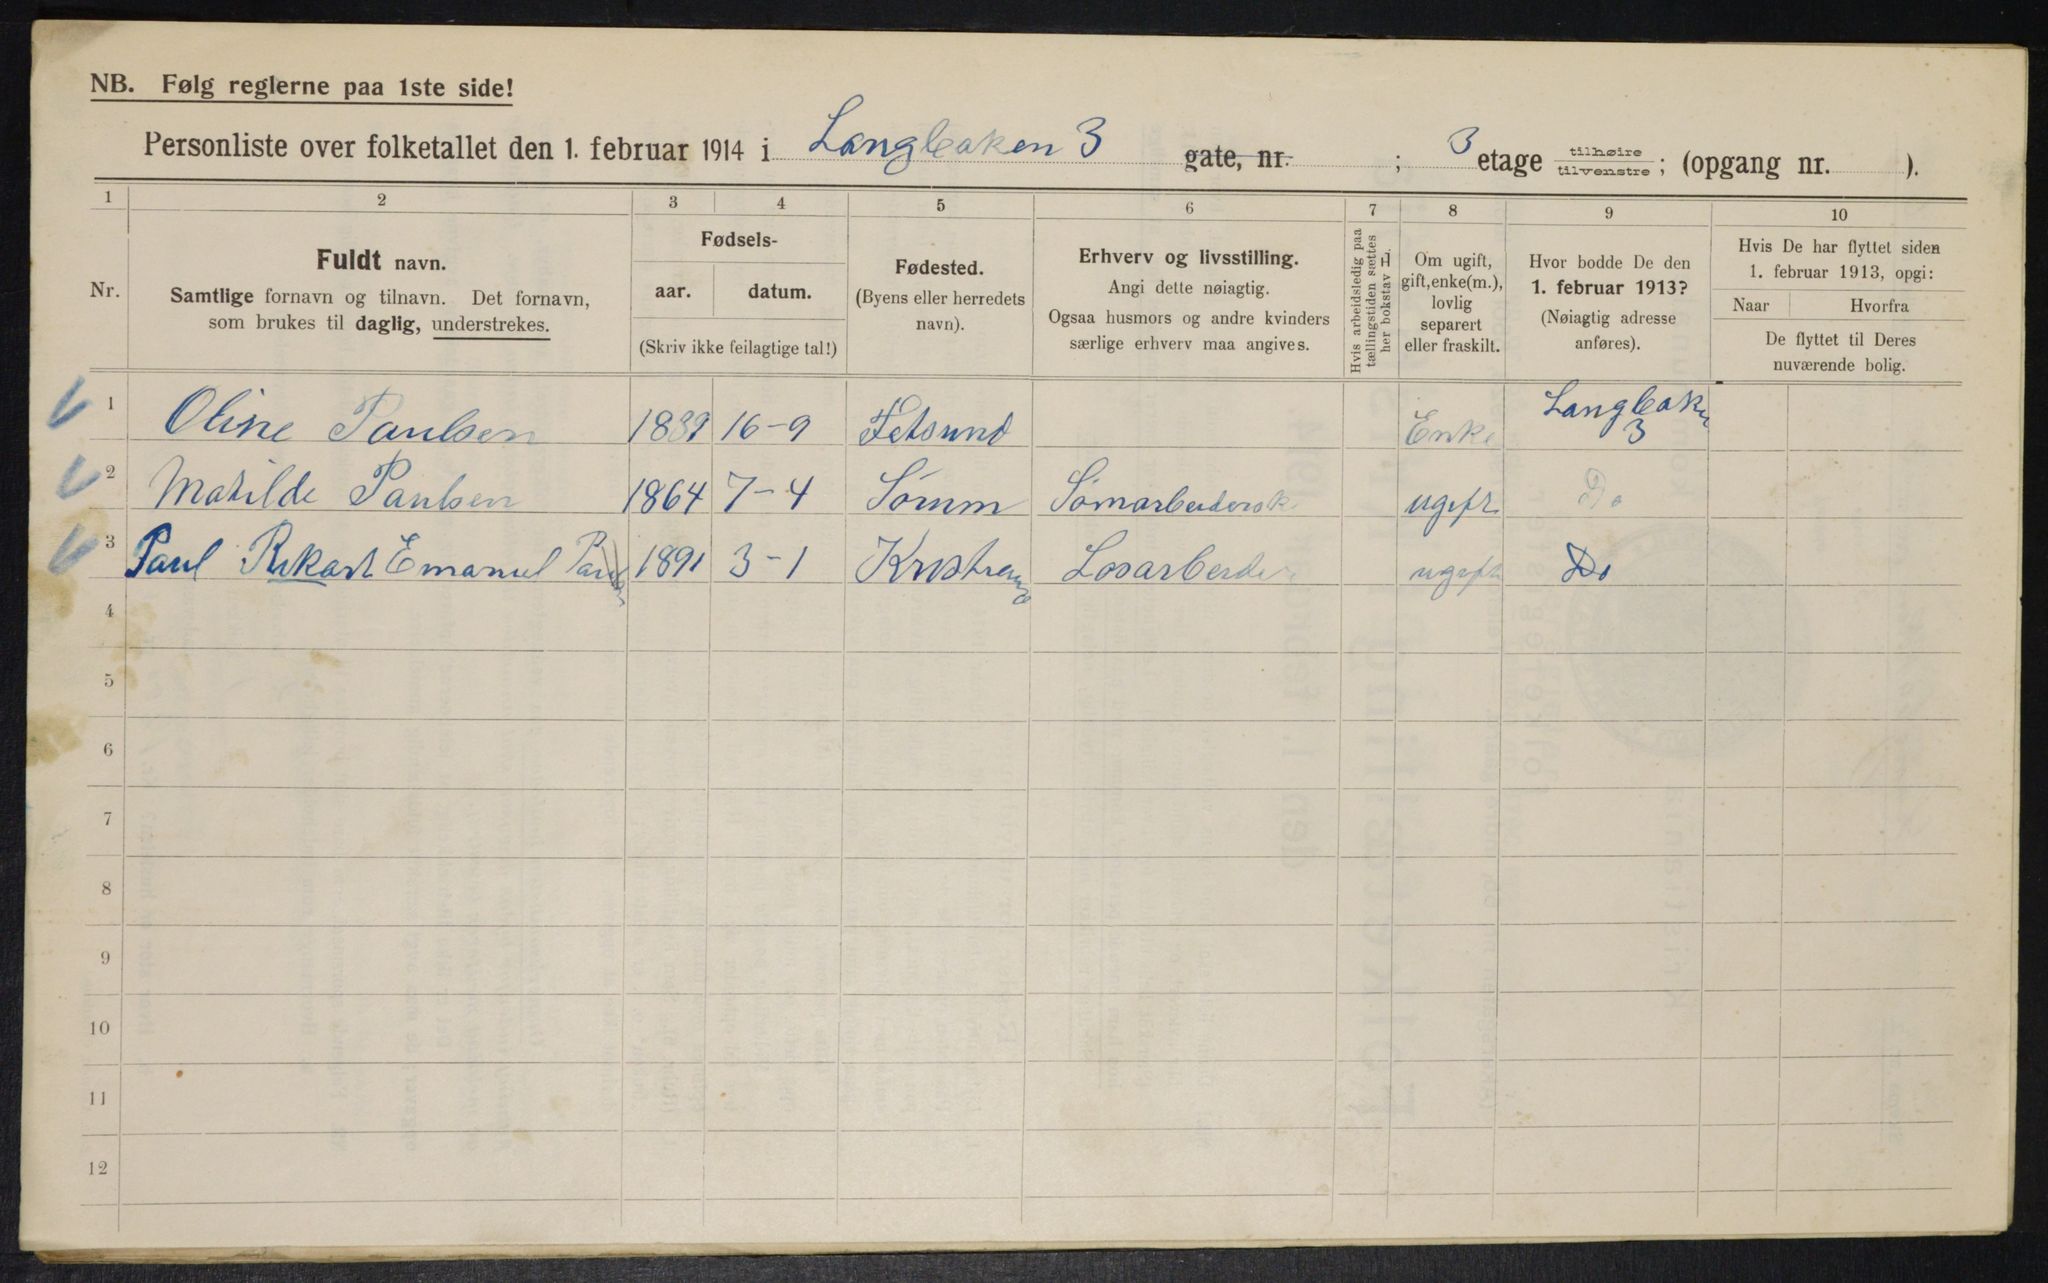 NB. Følg reglerne paa 1ste side!
Personliste over folketallet den 1. februar 1914 i Langleaken 3 gate, nr. ; 3 etage tilhøire/tilvenstre; (opgang nr. ).
1 2 3 4 5 6 7 8 9 10
Nr.
Fuldt navn.
Samtlige fornavn og tilnavn. Det fornavn,
som brukes til daglig, understrekes.
Fødsels-
aar. datum.
(Skriv ikke feilagtige tal!)
Fødested.
(Byens eller herredets
navn).
Erhverv og livsstilling.
Angi dette nøiagtig.
Ogsaa husmors og andre kvinders
særlige erhverv maa angives.
Hvis arbeidsledig paa
tællingstiden sættes
her bokstav L.
Om ugift,
gift, enke(m.),
lovlig
separert
eller fraskilt.
Hvor bodde De den
1. februar 1913?
(Nøiagtig adresse
anføres).
Hvis De har flyttet siden
1. februar 1913, opgi:
Naar Hvorfra
De flyttet til Deres
nuværende bolig.
1 Oline Paulsen 1839 16-9 Fetsund Enke Langleaken 3
2 Matilde Paulsen 1864 7-4 Sørum Sømarbeidersk ugift Do
3 Paul Rikart Emanuel Paulsen 1891 3-1 Kristiania Losarbeider ugift Do
4
5
6
7
8
9
10
11
12